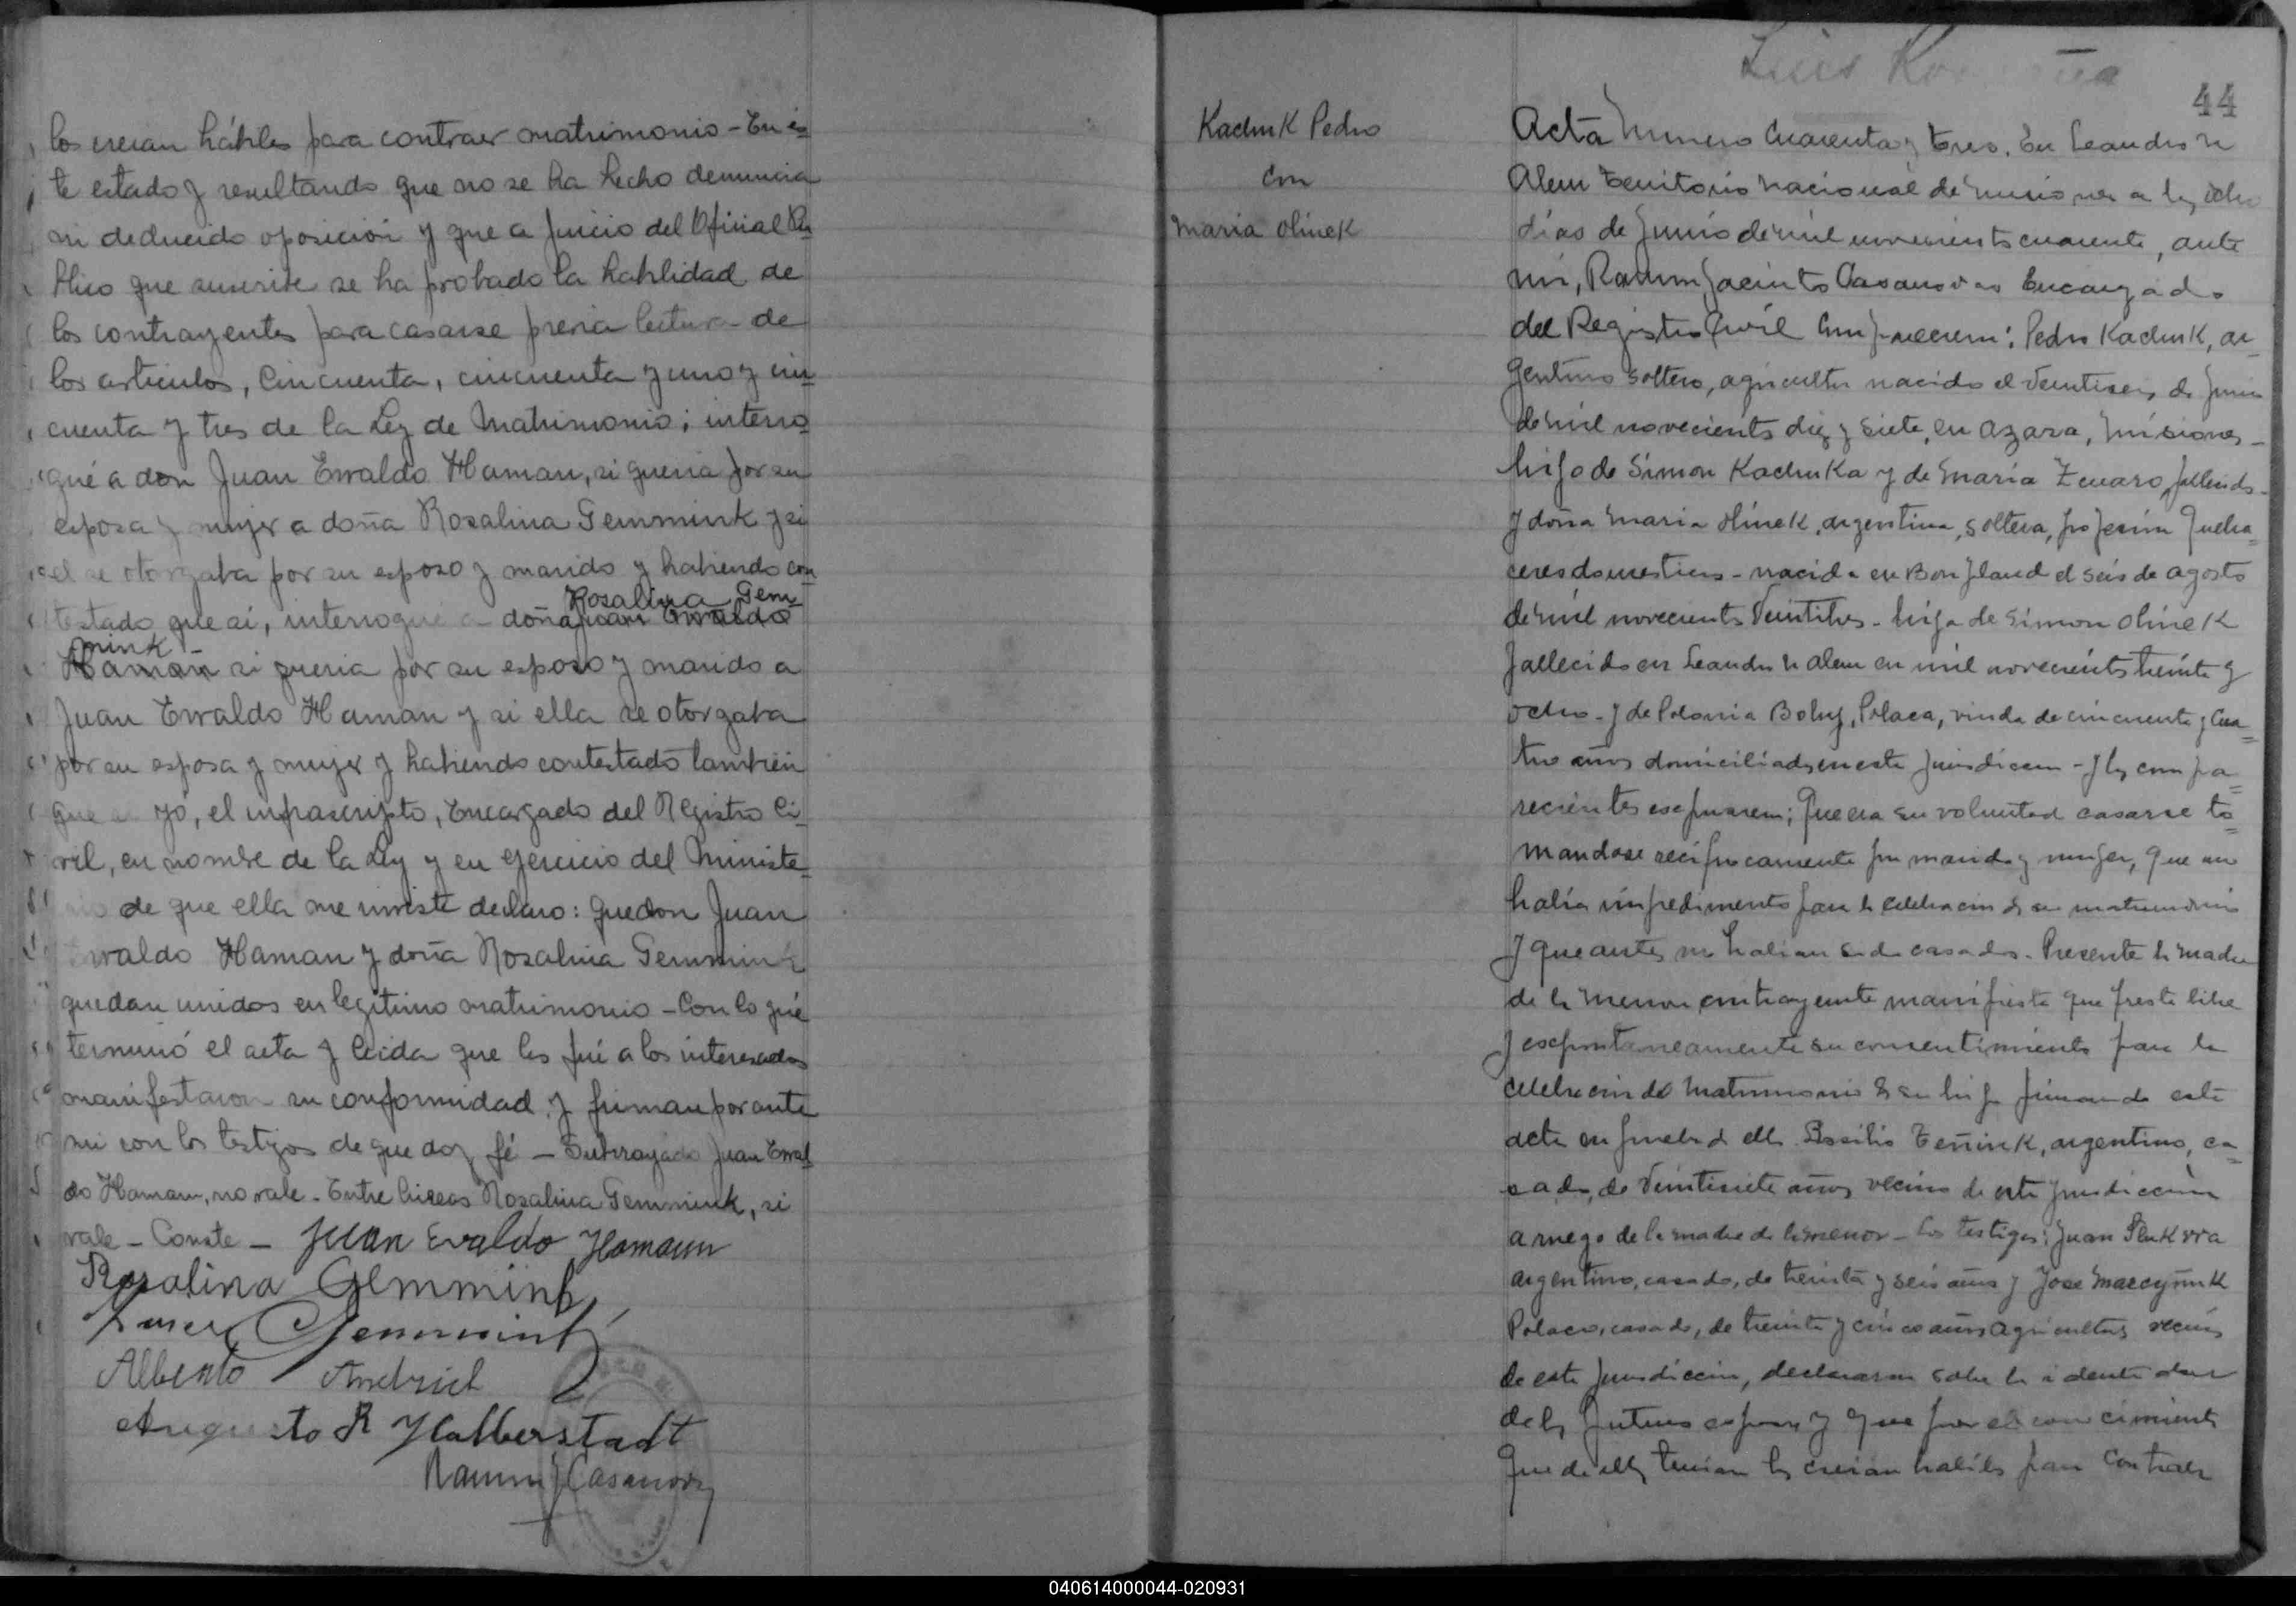 los creian hábiles para contraer matrimonio - En es
te estado y resultando que no se ha hecho denuncia
ni deducido oposición y que a juicio del Oficial Pú
blico que suscribe se ha probado la habilidad de
los contrayentes para casarse previa lectura de
los articulos, Cincuenta, cincuenta y uno y cin
cuenta y tres de la Ley de Matrimonio; interro
gué a don Juan Evaldo Haman, si queria por su
esposa y mujer a doña Rosalina Gemmink y si
el se otorgaba por su esposo y marido y habiendo con
Rosalina Gem
testado que si, interrogué a doña Juan Evaldo
mink
Haman si queria por su esposo y marido a
Juan Evaldo Haman y si ella se otorgaba
por su esposa y mujer y habiendo contestado tambien
que yó, el infrascripto, Encargado del Registro Ci
vil, en nombre de la Ley y en ejercicio del Ministe
de que ella me inviste declaro: que don Juan
Evaldo Haman y doña Rosalina Gemmink
quedan unidos en legitimo matrimonio - Con lo que
terminó el acta y leida que les fué a los interesados
manifestaron su conformidad y firman por ante
mi con los testigos de que doy fé - Subrayado Juan Eval
do Haman, no vale - Entre lineas Rosalina Gemmink, si
vale - Conste - Juan Evaldo Hamann
Rosalina Gemmink
Gemmink
Alberto
Augusto R Halberstadt
Ramon J Casanova
Luis
44
Kachuk Pedro
con
Maria Olinek
Acta Numero Cuarenta y tres. En Leandro N
Alem Territorio Nacional de Misiones a los ocho
días de Junio de mil novecientos cuarenta, ante
mi, Ramon Jacinto Casanovas Encargado
del Registro Civil Comparecieron: Pedro Kachuk, ar
gentino soltero, agricultor nacido el veintiseis de Junio
de mil novecientos diez y siete, en Azara, Misiones -
hijo de Simon Kachuka y de Maria fallecidos -
y doña Maria Olinek, argentina, soltera, profesión Queha
ceres domesticos - nacida en Bonpland el seis de agosto
de mil novecientos veintitres - hija de Simon Olinek
fallecido en Leandro N Alem en mil novecientos treinta y
ocho - y de Polonia Polaca, viuda de cincuenta y cua
tro años domiciliados en esta jurisdiccion - y los compa
recientes expusieron; Que era su voluntad casarse to
mandose reciprocamente por marido y mujer, que no
habia impedimento para la celebracion de su matrimonio
y que antes no habian sido casados. Presente la madre
de la menor contrayente manifiesta que presta libre
y espontaneamente su consentimiento para la
celebracion del Matrimonio de su hija firmando esta
acta en prueba de ello Basilio argentino, ca
sado, de veintisiete años vecino de esta jurisdiccion
a ruego de la madre de la menor - Los testigos: Juan
argentino, casado, de treinta y seis años y Jose
Polaco, casado, de treinta y cinco años agricultores vecinos
de esta jurisdiccion, declararon sobre la identidad
de los futuros esposos y que por el conocimiento
que de ellos tenian los creian habiles para Contraer
040614000044-020931